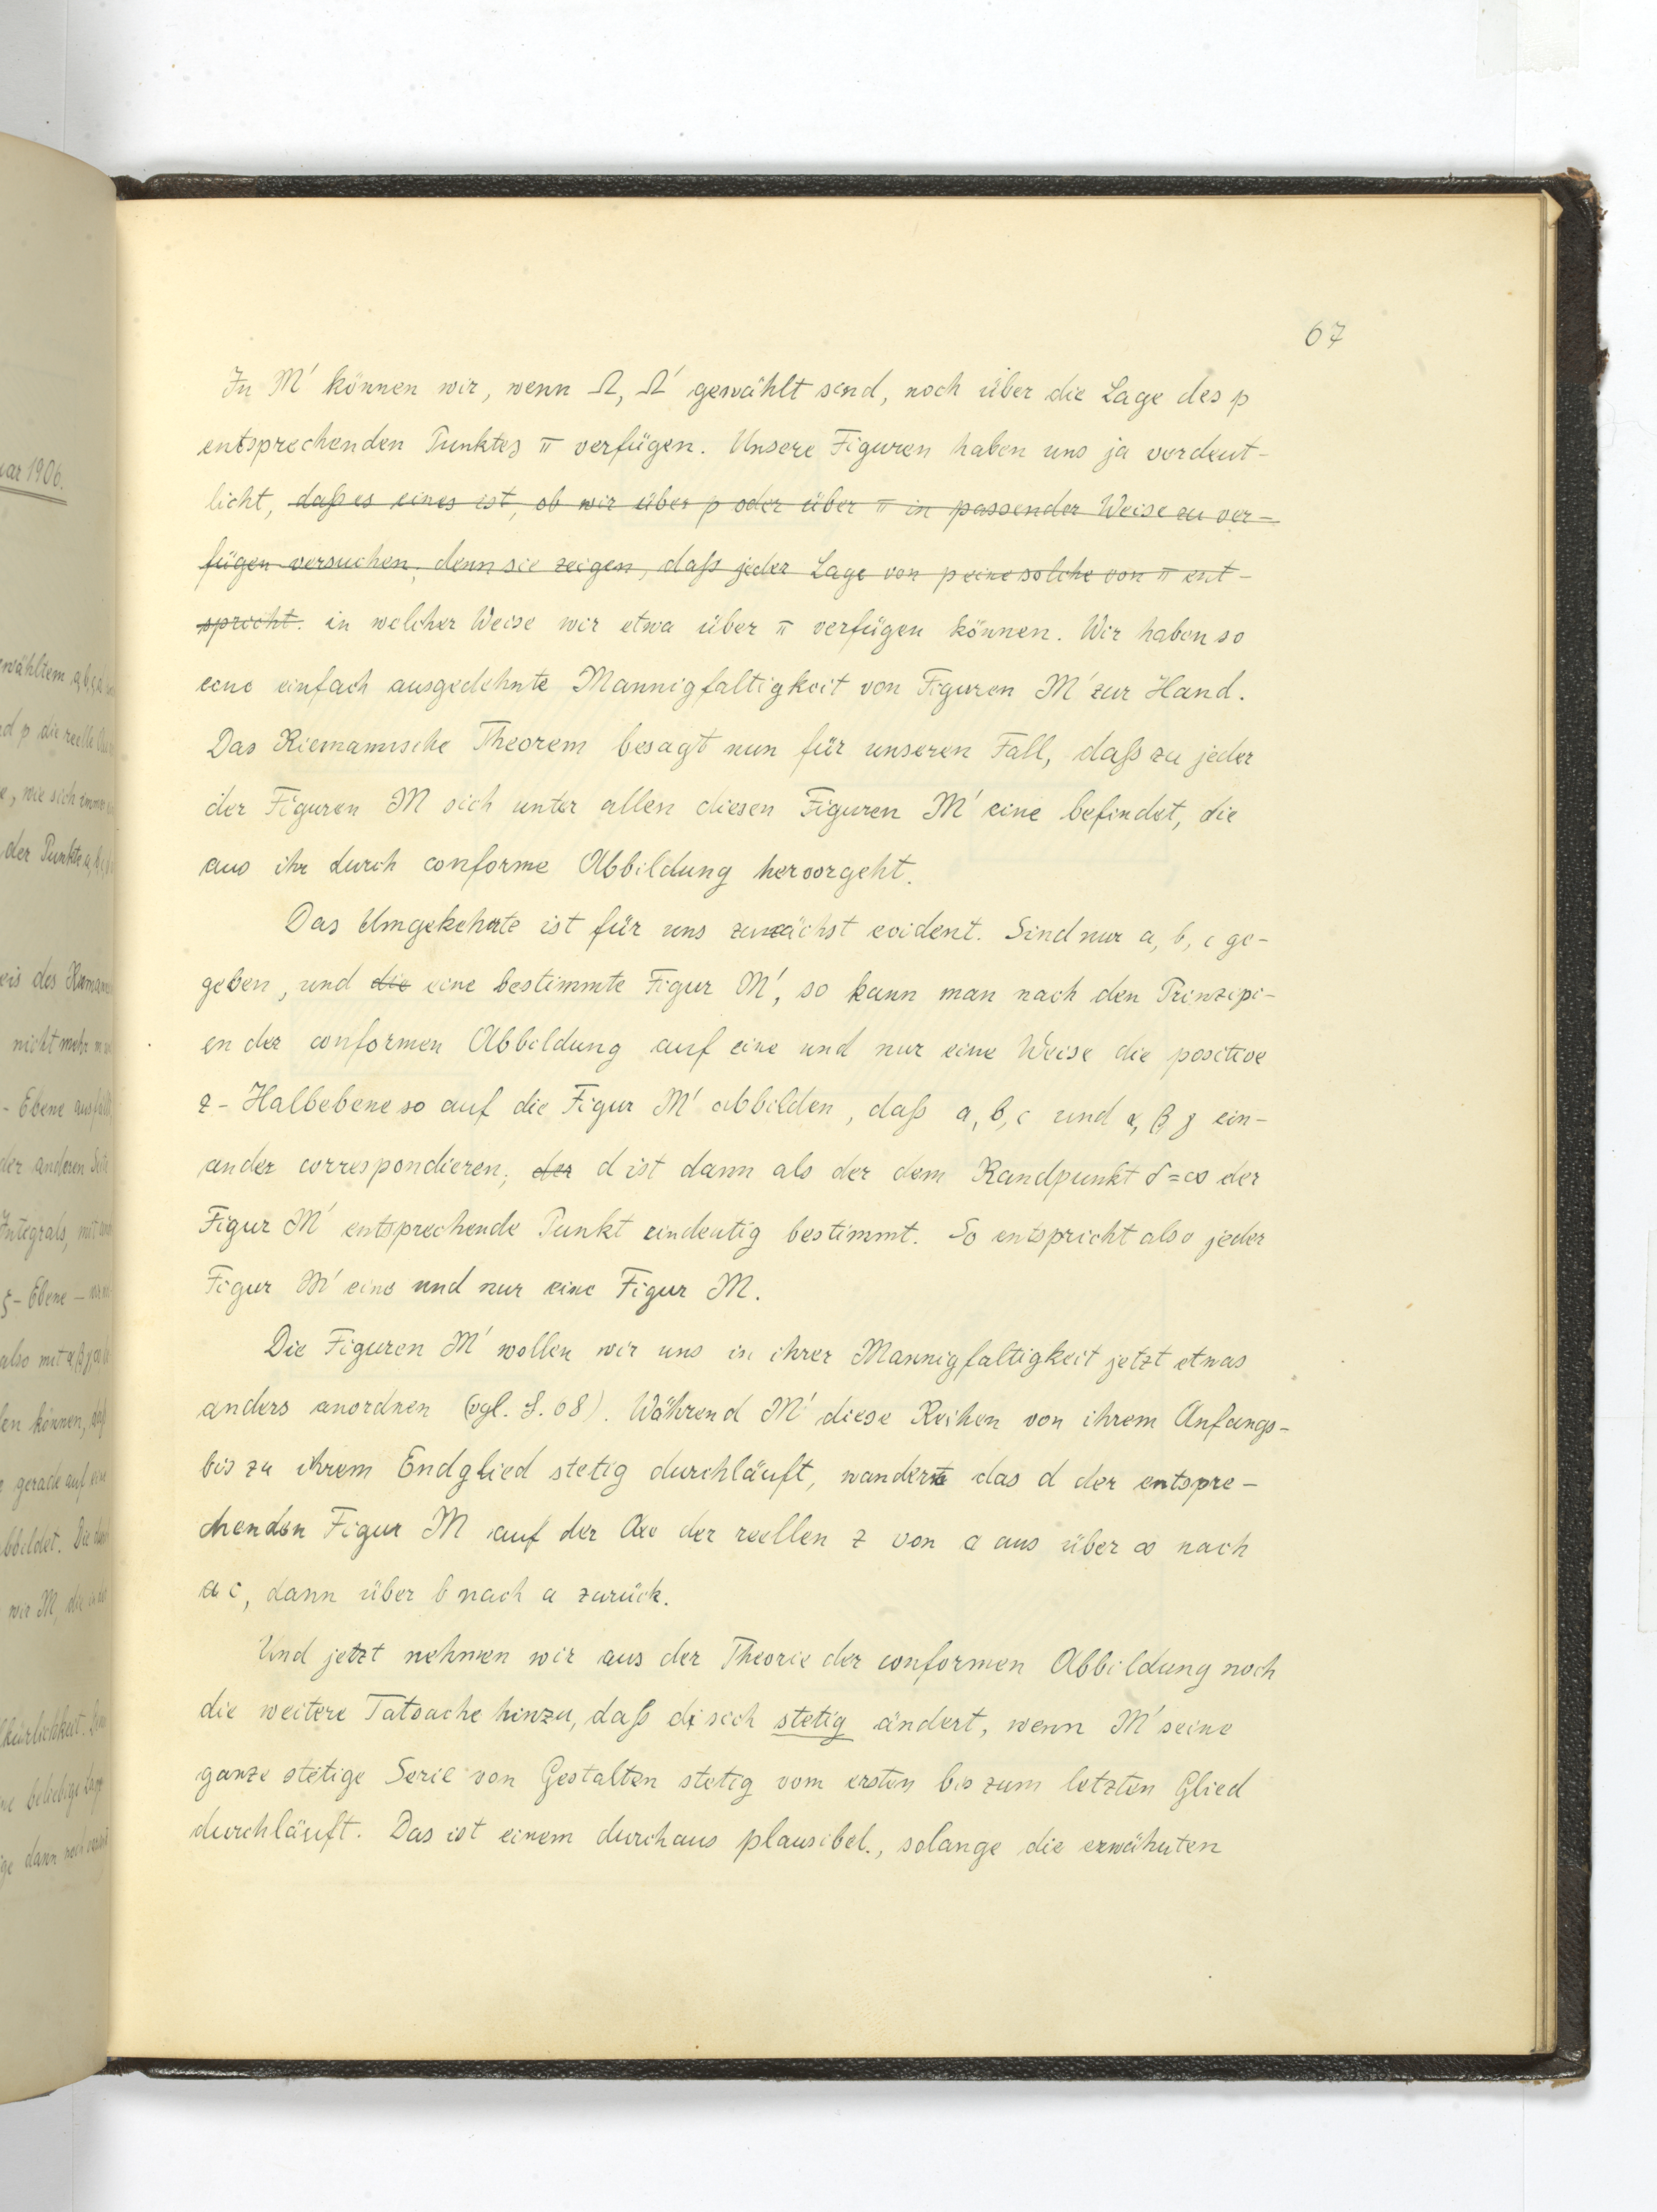 67
In M' können wir, wenn Ω, Ω' gewählt sind, noch über die Lage des p
entsprechenden Punktes π verfügen. Unsere Figuren haben uns ja verdeut-
licht, daß es eines ist, ob wir über p oder über π in passender Weise zu ver-
fügen versuchen; denn sie zeigen, daß jeder Lage von p eine solche von π ent-
spricht. in welcher Weise wir etwa über π verfügen können. Wir haben so
eine einfach ausgedehnte Mannigfaltigkeit von Figuren M' zur Hand.
Das Riemannische Theorem besagt nun für unseren Fall, daß zu jeder
der Figuren M sich unter allen diesen Figuren M' eine befindet, die
aus ihr durch conforme Abbildung hervorgeht.
Das Umgekehrte ist für uns zunächst evident. Sind nur a, b, c ge-
geben, und die eine bestimmte Figur M', so kann man nach den Prinzipi-
en der conformen Abbildung auf eine und nur eine Weise die positive
z-Halbebene so auf die Figur M' abbilden, daß a, b, c und α, β γ ein-
ander correspondieren; der d ist dann als der dem Randpunkt δ=∞ der
Figur M' entsprechende Punkt eindeutig bestimmt. So entspricht also jeder
Figur M' eine und nur eine Figur M.
Die Figuren M' wollen wir uns in ihrer Mannigfaltigkeit jetzt etwas
anders anordnen (vgl. S. 68). Während M' diese Reihen von ihrem Anfangs-
bis zu ihrem Endglied stetig durchläuft, wandert das d der entspre-
chenden Figur M auf der Axe der reellen z von a aus über ∞ nach
c, dann über b nach a zurück.
Und jetzt nehmen wir aus der Theorie der conformen Abbildung noch
die weitere Tatsache hinzu, daß d sich stetig ändert, wenn M' seine
ganze stetige Serie von Gestalten stetig vom ersten bis zum letzten Glied
durchläuft. Das ist einem durchaus plausibel., solange die erwähnten
uar 1906.